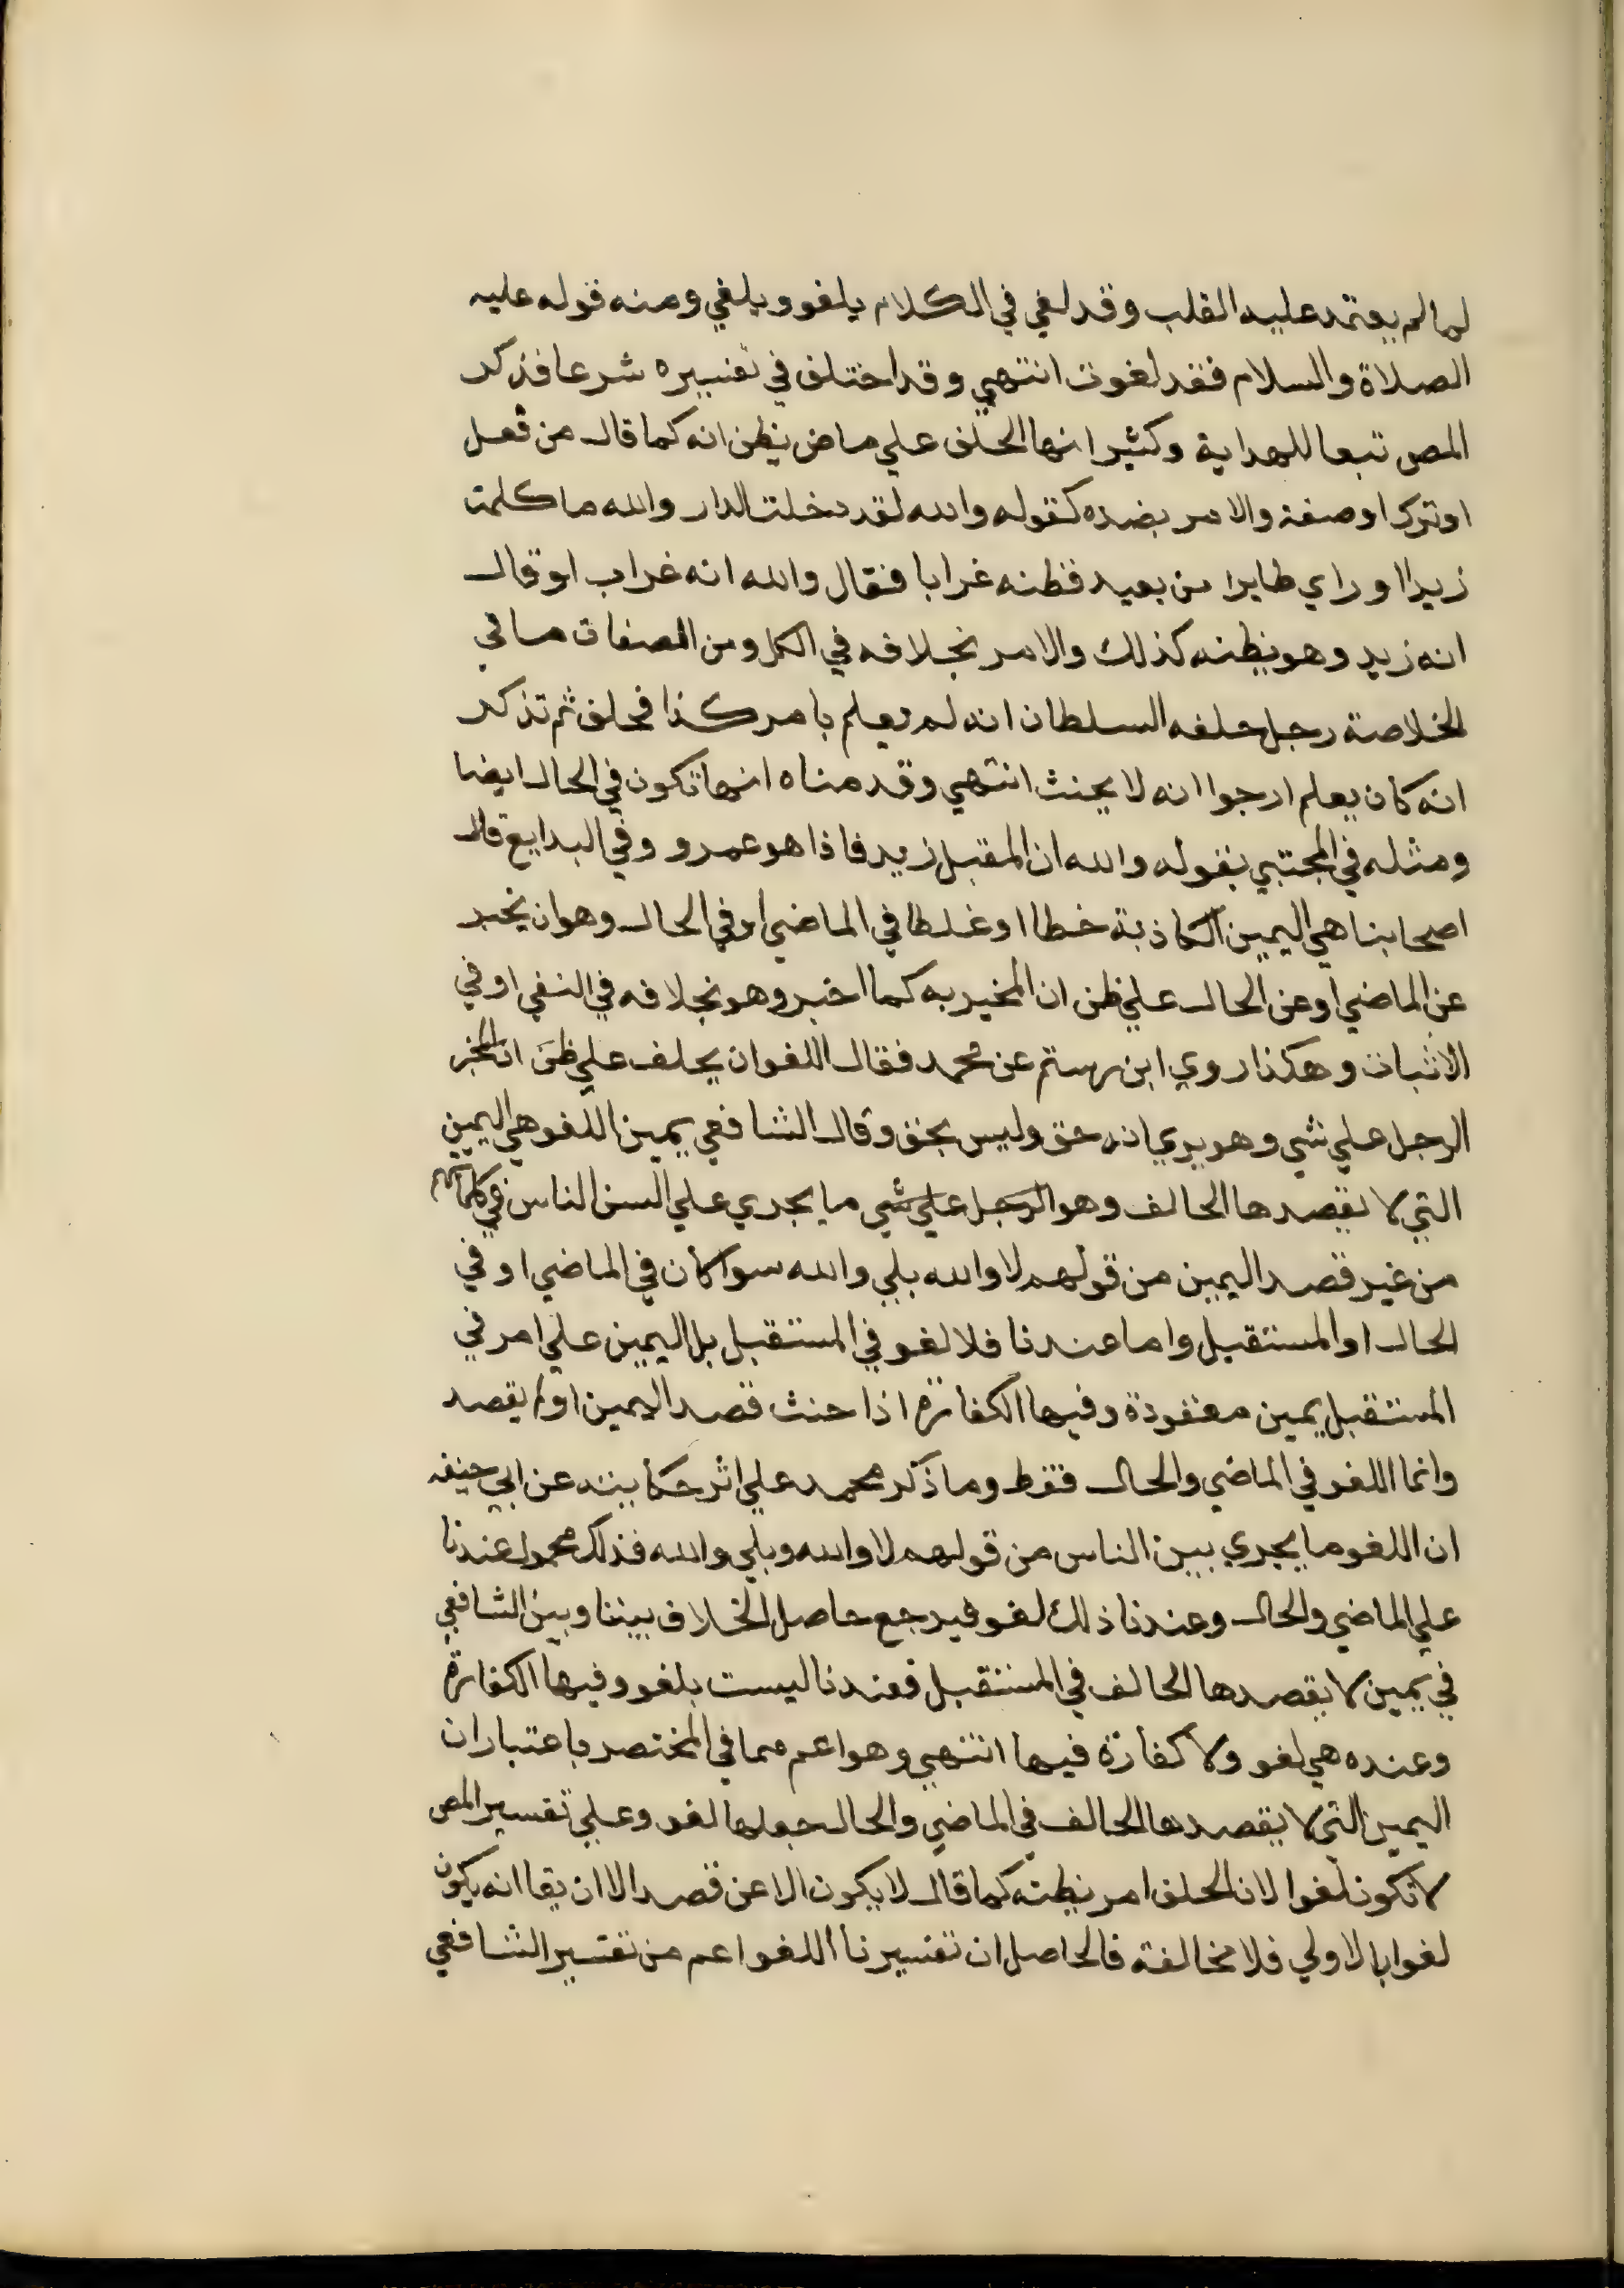 لما لم يعتمد عليه القلب وقد لغي في الكلام يلغو ويلغي ومنه قوله عليه
الصلاة والسلام فقد لغوت انتهي وقد اختلف في تفسيره شرعا فذكر
المص تبعا للهداية وكثير انها الحلف علي ماض يظن انه كما قال من فعل
او ترك او صفة والامر بضده كقوله والله لقد دخلت الدار والله ما كلمت
زيدا او راي طايرا من بعيد فظنه غرابا فقال والله انه غراب او قال
انه زيد وهو يظنه كذلك والامر بخلافه في الكل ومن الصفات ما في
الخلاصة رجل حلفه السلطان انه لم يعلم بامر كذا فحلف ثم تذكر
انه كان يعلم ارجوا انه لا يحنث انتهي وقدمناه انها تكون في الحال ايضا
ومثله في المجتبي بقوله والله ان المقبل زيد فاذا هو عمرو وفي البدايع قال
اصحابنا هي اليمين الكاذبة خطا او غلطا في الماضي او في الحال وهو ان يخبر
عن الماضي او عن الحال علي ظن ان المخبر به كما اخبر وهو بخلافه في النفي او في
الاثبات وهكذا روي ابن رستم عن محمد فقال اللغو ان يحلف علي ظن ان المخبر
الرجل علي شي وهو يري انه حق وليس بحق وقال الشافعي يمين اللغو هي اليمين
التي لا يقصدها الحالف وهو الرجل علي شي ما يجري علي السن الناس في كلامهم
من غير قصد اليمين من قولهم لا والله بلي والله سوا كان في الماضي او في
الحال او المستقبل واما عندنا فلا لغو في المستقبل بل اليمين علي امر في
المستقبل يمين معقودة وفيها الكفارة اذا حنث قصد اليمين او لم يقصد
وانما اللغو في الماضي والحال فقط وما ذكر محمد علي اثر حكايته عن ابي حنيفه
ان اللغو ما يجري بين الناس من قولهم لا والله وبلي والله فذلك محمول عندنا
علي الماضي والحال وعندنا ذلك لغو فيرجع حاصل الخلاف بيننا وبين الشافعي
في يمين لا يقصدها الحالف في المستقبل فعندنا ليست بلغو وفيها الكفارة
وعنده هي لغو ولا كفارة فيها انتهي وهو اعم مما في المختصر باعتبار ان
اليمين التي لا يقصدها الحالف في الماضي والحال جعلها لغو وعلي تفسير المص
لا تكون لغوا لان الحلف امر يظنه كما قال لا يكون الا عن قصد الا ان يقا انه يكون
لغوا بالاولي فلا مخالفة فالحاصل ان تفسيرنا اللغو اعم من تفسير الشافعي